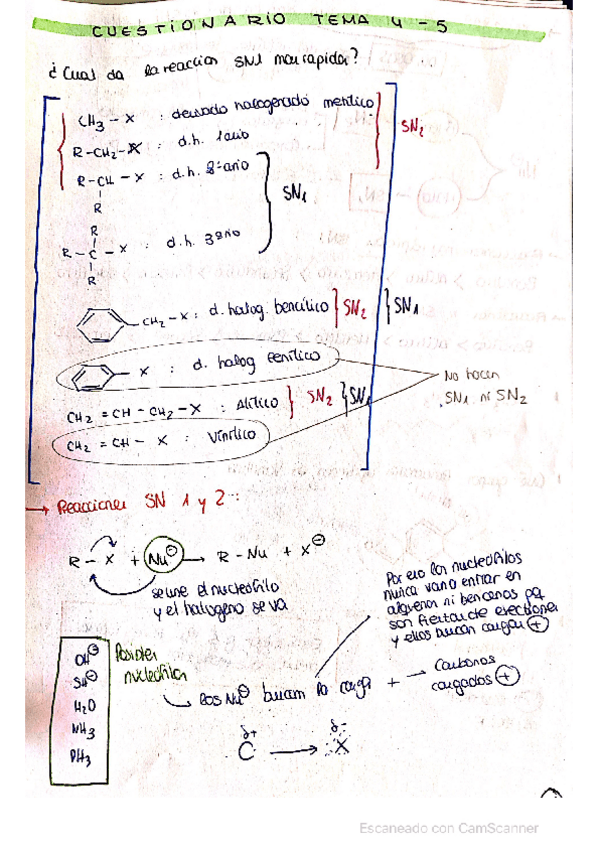 CUESTIONARIO TEMA 4-5
¿Cual da la reaccion SN1 mas rapida?
CH3 - X : derivado halogenado metilico
R-CH2-X : d.h. 1ario
R-CH-X : d.h. 2ario
R
SN2
SN1
R
R-C-X : d.h. 3ario
R
CH2-X : d. halog. bencilico } SN2 } SN1
X : d. halog fenilico
No hacen
SN1 ni SN2
CH2=CH-CH2-X : Alilico } SN2 } SN1
CH2=CH-X : Vinilico
→ Reacciones SN 1 y 2:
R-X + Nu⊖ → R-Nu + X⊖
se une el nucleofilo
y el halogeno se va
Por eso los nucleofilos
nunca van a entrar en
ni bencenos
son de electrones
y ellos buscan cargas ⊕
OH⊖
SH⊖
H2O
NH3
PH3
Posibles
nucleofilos
los Nu⊖ buscan la carga + → Carbonos
cargados ⊕
δ+ δ-
C → X
Escaneado con CamScanner